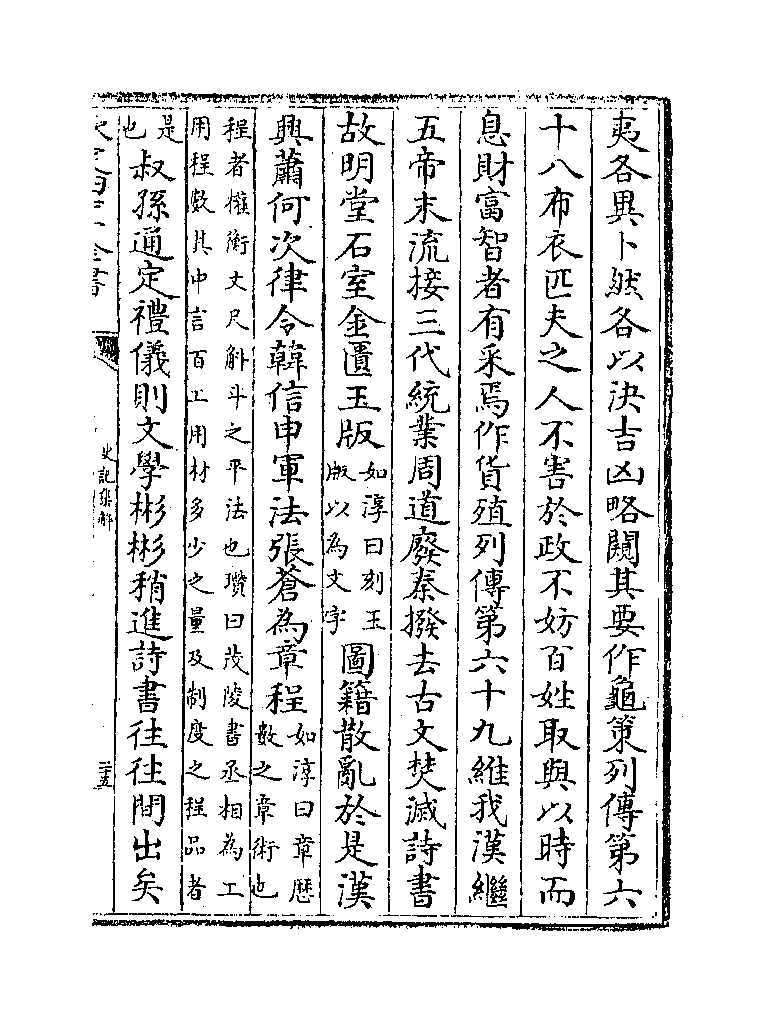 夷各異卜然各以決吉凶略闚其要作龜策列傳第六
十八布衣匹夫之人不害於政不妨百姓取與以時而
息財富智者有采焉作貨殖列傳第六十九維我漢繼
五帝末流接三代統業周道廢秦撥去古文焚滅詩書
故明堂石室金匱玉版
如淳曰刻玉
版以為文字
圖籍散亂於是漢
興蕭何次律令韓信申軍法張蒼為章程
如淳曰章歷
數之章術也
程者權衡丈尺斛斗之平法也瓚曰茂陵書丞相為工
用程數其中言百工用材多少之量及制度之程品者
是
也
叔孫通定禮儀則文學彬彬稍進詩書往往間出矣
史記集解
二十五